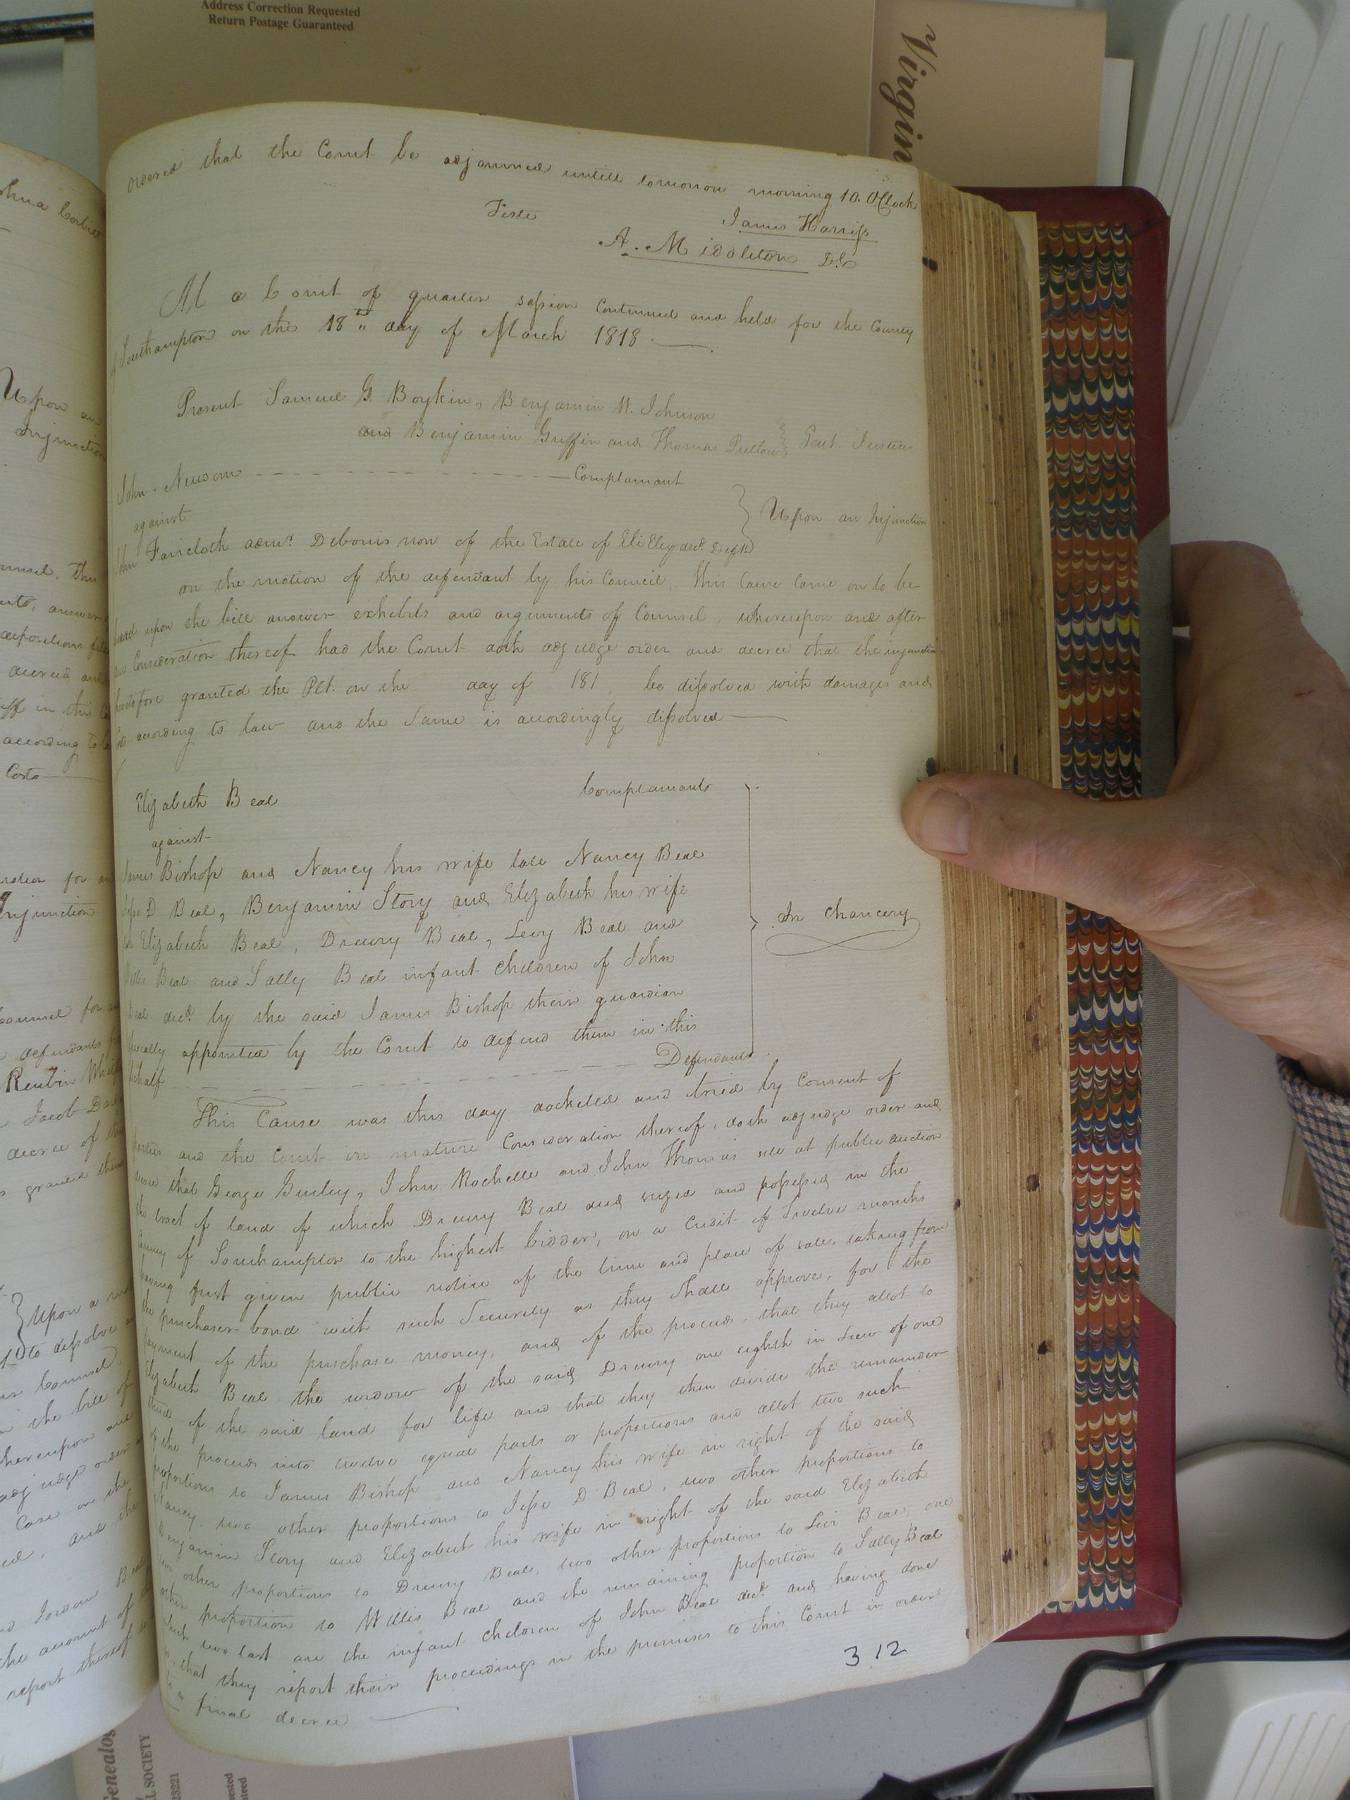 Address Correction Requested
Return Postage Guaranteed
Virgin
ordered that the Court be adjourned untill tomorrow morning 10. OClock
Teste
James Harriss
A. Middleton D.C
At a Court of quarter session continued and held for the County
of Southampton on the 18th day of March 1818.
Present Samuel G. Boykin, Benjamin W. Johnson
and Benjamin Griffin and Thomas Pretlow Gent. Justices
John Newsom Complainant
against
Upon an Injunction
John Faircloth admr. Debonis non of the Estate of Eli Eley decd. Deft
on the motion of the defendant by his Council, this Cause came on to be
heard upon the bill answer exhibits and arguments of Counsel, whereupon and after
due Consideration thereof had the Court doth adjudge order and decree that the injunction
heretofore granted the Plt. on the day of 181 be dissolved with damages and
Costs according to law and the Same is accordingly dissolved
Elizabeth Beal Complainant
against
James Bishop and Nancy his wife late Nancy Beal
Jesse D Beal, Benjamin Story and Elizabeth his wife
late Elizabeth Beal, Drewry Beal, Levy Beal and
Willis Beal and Sally Beal infant children of John
Beal decd. by the said James Bishop their guardian
specially appointed by the Court to defend them in this
behalf Defendants
In Chancery
This Cause was this day docketed and tried by Consent of
parties and the Court on mature Consideration thereof, doth adjudge order and
decree that George Gurley, John Rochelle and John Thomas sell at public auction
the tract of land of which Drewry Beal died seized and possessed in the
County of Southampton to the highest bidder, on a Credit of Twelve months
having first given public notice of the time and place of sale, taking from
the purchaser bond with such Security as they shall approve, for the
payment of the purchase money, and of the proceeds, that they allot to
Elizabeth Beal the widow of the said Drewry one eighth in Lieu of one
third of the said land for life and that they then divide the remainder
of the proceeds into twelve equal parts or proportions and allot two such
proportions to James Bishop and Nancy his wife in right of the said
Nancy two other proportions to Jesse D Beal, two other proportions to
Benjamin Story and Elizabeth his wife in right of the said Elizabeth
two other proportions to Drewry Beal, two other proportions to Levi Beal, one
other proportion to Willis Beal and the remaining proportion to Sally Beal
which two last are the infant Children of John Beal decd. and having done
so that they report their proceedings in the premises to this Court in order
to a final decree
312
Upon an
Injunction
according to
Costs
Injunction
Counsel for
defendants
Reubin
Jacob
decree of
granted
Upon a
to dissolve
Counsel
in the bill of
whereupon and
adjudge order
Case on the
and the
Jordan Beal
the account of
report thereof
Genealog
SOCIETY
23221